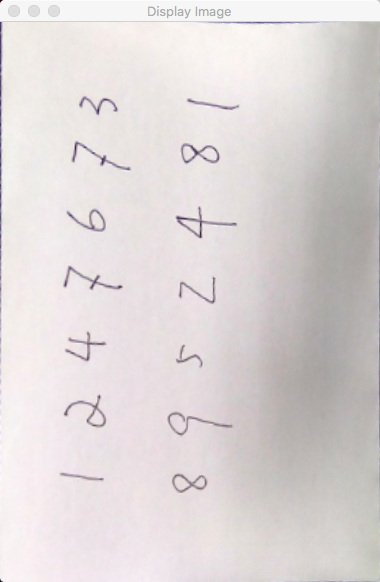 Display Image
1 2 4 7 6 7 3
8 9 5 2 4 8 1